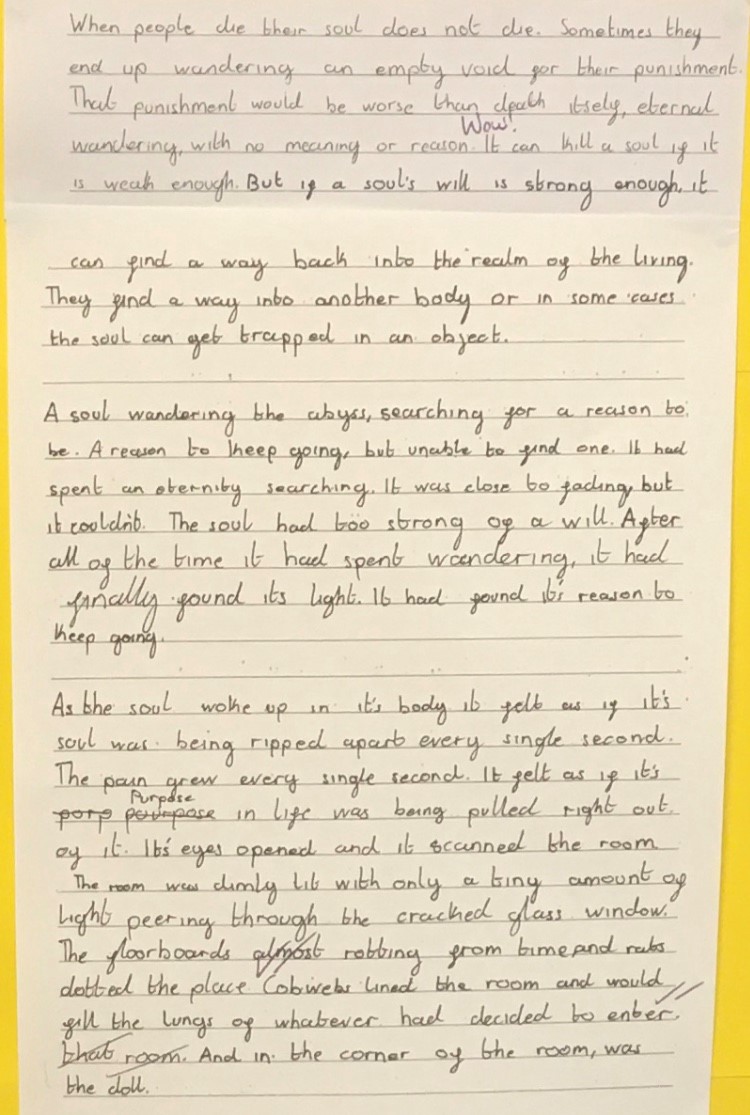 When people die their soul does not die. Sometimes they
end up wandering an empty void for their punishment.
That punishment would be worse than death itself, eternal
Wow!
wandering, with no meaning or reason. It can kill a soul if it
is weak enough. But if a soul's will is strong enough, it
can find a way back into the realm of the living.
They find a way into another body or in some cases
the soul can get trapped in an object.
A soul wandering the abyss, searching for a reason to
be. A reason to keep going, but unable to find one. It had
spent an eternity searching. It was close to fading, but
it couldn't. The soul had too strong of a will. After
all of the time it had spent wandering, it had
finally found its light. It had found it's reason to
keep going.
As the soul woke up in it's body it felt as if it's
soul was being ripped apart every single second.
The pain grew every single second. It felt as if it's
Purpose
porp pourpose in life was being pulled right out
of it. It's eyes opened and it scanned the room
The room was dimly lit with only a tiny amount of
light peering through the cracked glass window.
The floorboards almost robbing from time and rats
dotted the place Cobwebs lined the room and would
fill the lungs of whatever had decided to enter.
that room. And in the corner of the room, was
the doll.